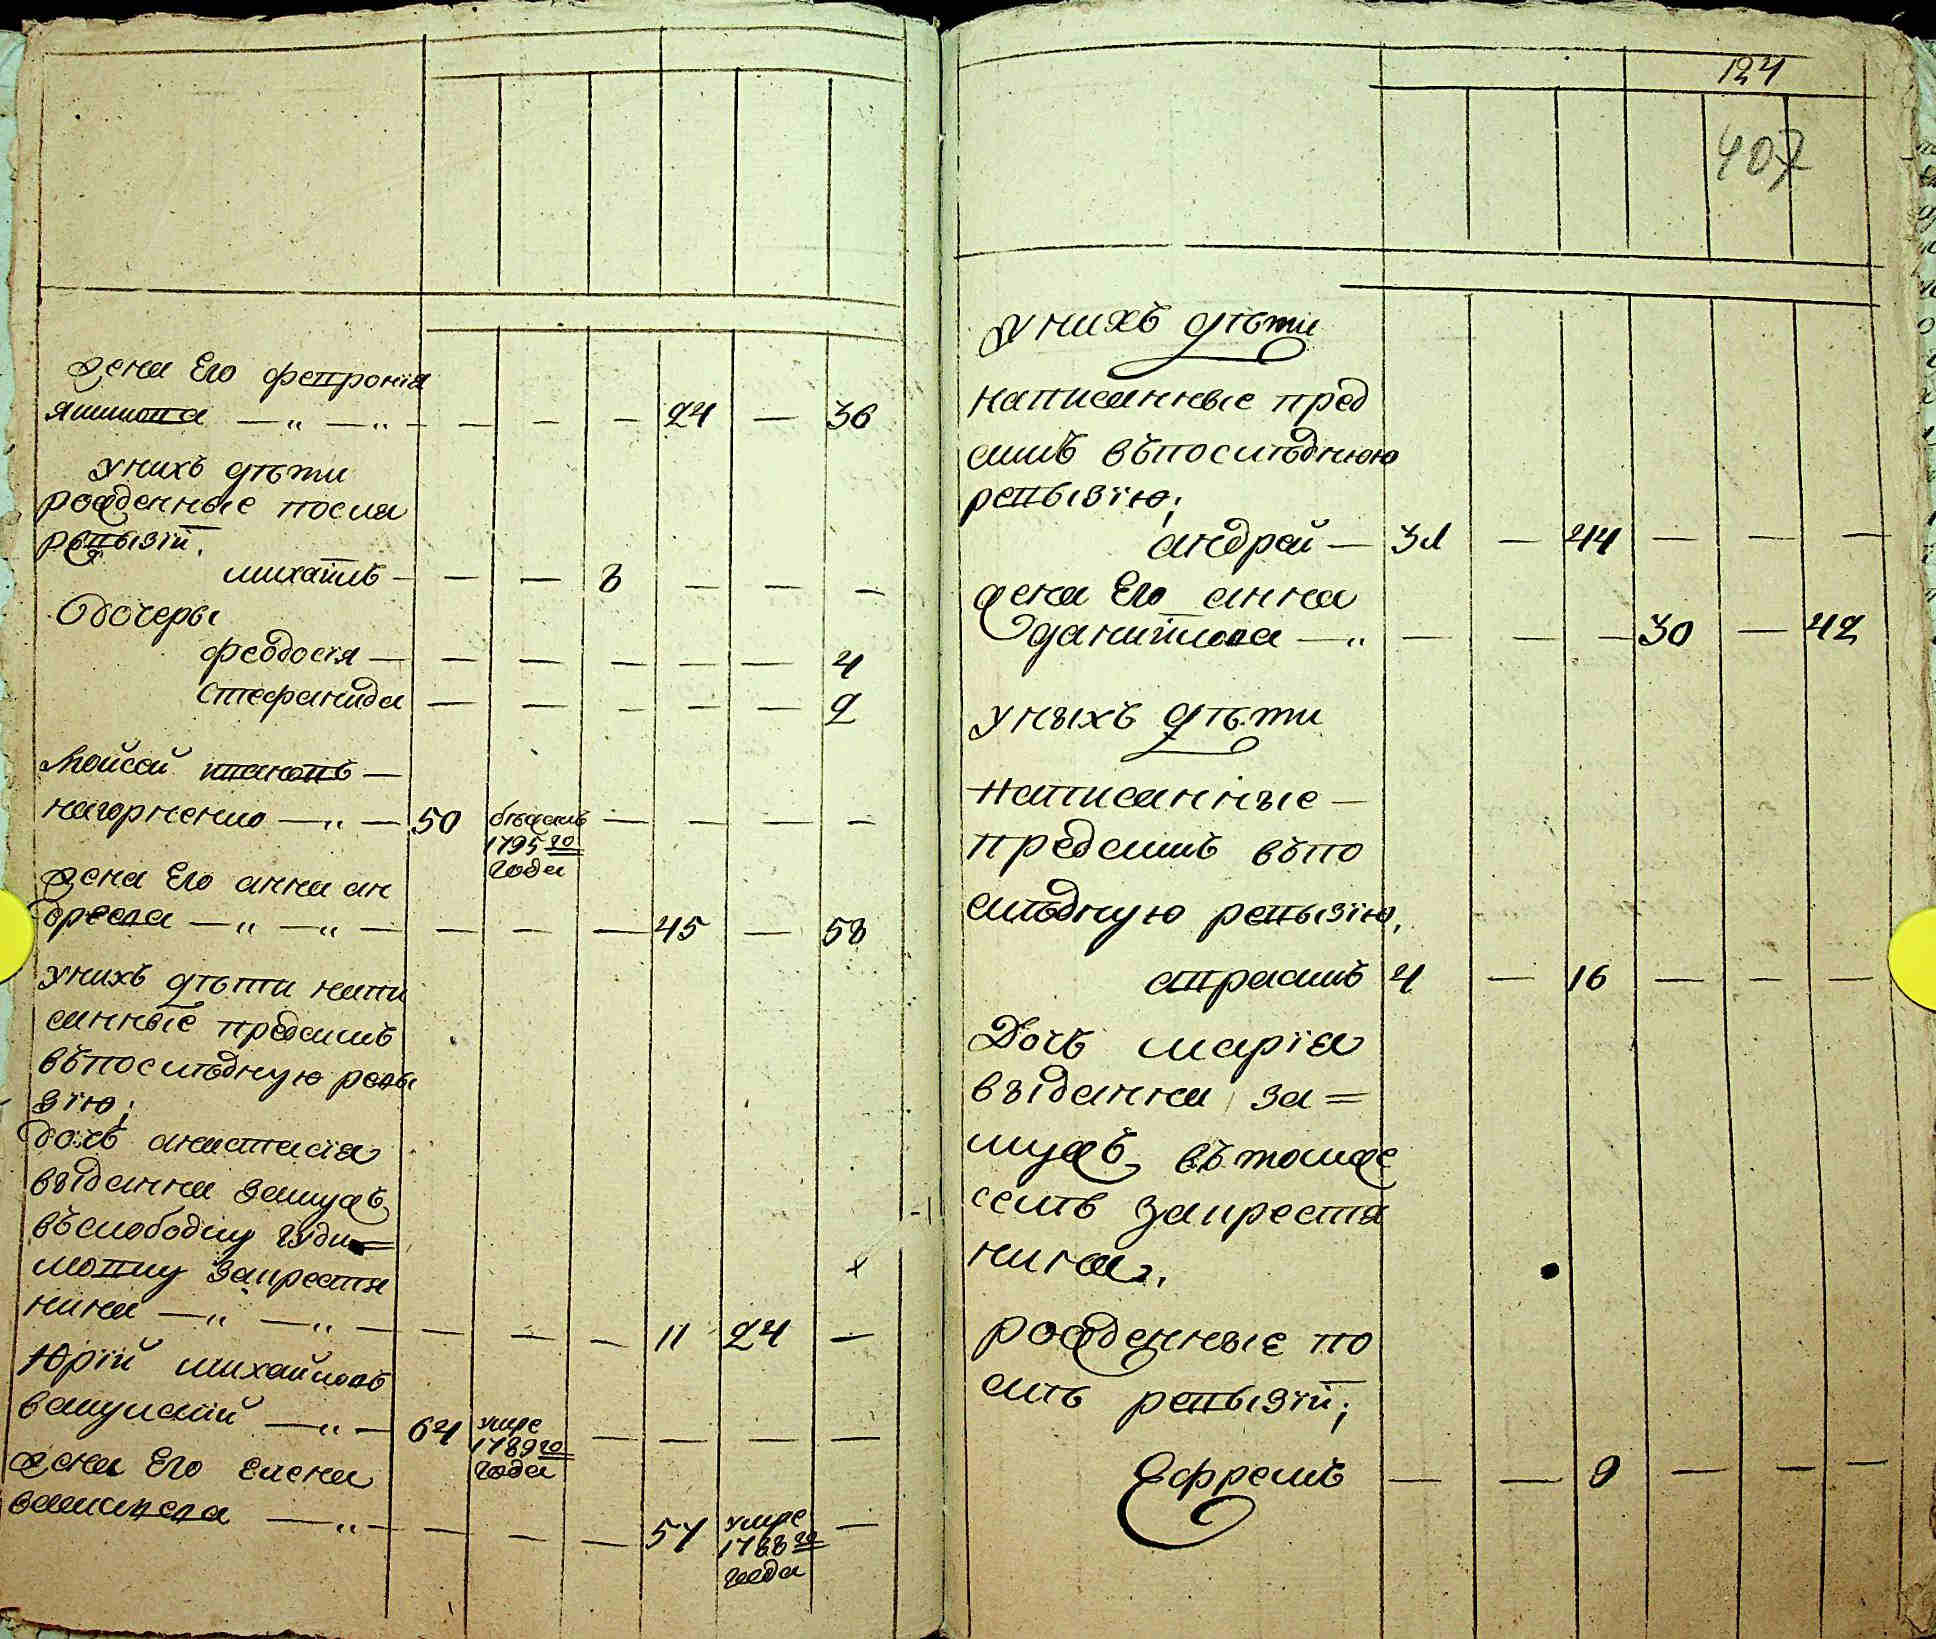 жена Его фетронія
якимова — „ — „ — — — — 24 — 36
унихъ дѣти
рожденные посля
ревызіи,
михаилъ — — — 8 — — —
Дочеры
феодосія — — — — — — 4
стефанида — — — — — 2
Мойсей
нагорненко — „ — 50 бежалъ 1795 го года — — — —
жена Его анна ан
дреева — „ — „ — — — — 45 — 58
унихъ дѣти напи
санные предсимъ
въпослѣдную ревы
зію;
дочь анастасія
выданна замужъ
въслободку
запрестя
нина — „ — „ — — — — 11 24 —
Юрій михайловъ
— „ — 64 умре 1789 го года — — — —
жена Его елена
— „ — — — — 57 умре 1788 го года —
124
407
Унихъ дѣти
написанные пред
симъ въпослѣднюю
ревызію;
андрей — 31 — 44 — — —
жена Его анна
данилова — „ — — — 30 — 42
уныхъ дѣти
написанные —
предсимъ въпо
слѣдную ревызію,
4 — 16 — — —
Дочь марія
выданна за=
мужъ втомже
селѣ запрестя
нина,
рожденные по
слѣ ревызіи;
Ефремъ — — 9 — — —